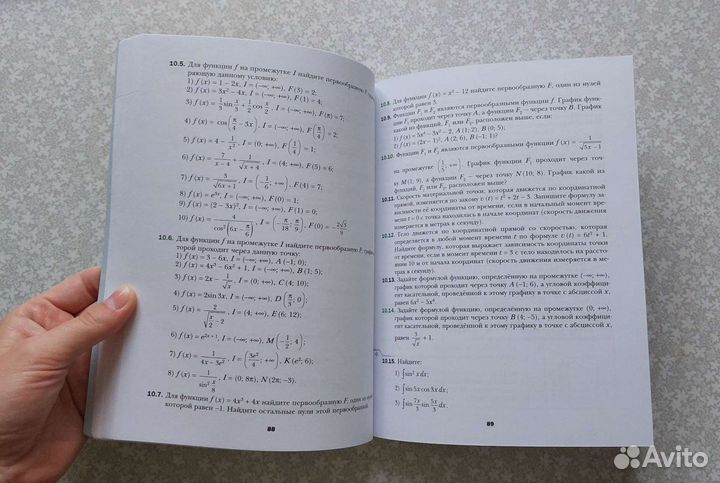 10.5. Для функции f на промежутке I найдите первообразную F,
ряющую данному условию:
1) f(x) = 1 − 2x, I = (−∞; +∞), F(3) = 2;
2) f(x) = 3x² − 4x, I = (−∞; +∞), F(1) = 4;
3) f(x) = 1/3 sin x/3 + 1/2 cos x/2, I = (−∞; +∞), F(π) = 7;
4) f(x) = cos(π/4 − 3x), I = (−∞; +∞), F(π/4) = 2;
5) f(x) = 4 − 1/x², I = (0; +∞), F(1/4) = 1;
6) f(x) = 7/(x − 4) + 1/√(x + 4), I = (4; +∞), F(5) = 6;
7) f(x) = 3/√(6x + 1), I = (−1/6; +∞), F(4) = 7;
8) f(x) = I = (−∞; +∞), F(0) = 1;
9) f(x) = (2 − 3x)², I = (−∞; +∞), F(1) = 0;
10) f(x) = 4/cos²(6x − π/6), I = (−π/18; π/9), F(0) = −2√3/9
10.6. Для функции f на промежутке I найдите первообразную F,
торой проходит через данную точку:
1) f(x) = 3 − 6x, I = (−∞; +∞), A(−1; 0);
2) f(x) = 4x³ − 6x² + 1, I = (−∞; +∞), B(1; 5);
3) f(x) = 2x − 1/√x, I = (0; +∞), C(4; 10);
4) f(x) = 2sin 3x, I = (−∞; +∞), D(π/3; 0);
5) f(x) = 2/√(x/2 − 2), I = (4; +∞), E(6; 12);
6) f(x) = e²ˣ⁺¹, I = (−∞; +∞), M(−1/2; 4);
7) f(x) = 1/(4x − 3e²), I = (3e²/4; +∞), K(e²; 6);
8) f(x) = 1/sin²(x/8), I = (0; 8π), N(2π; −3).
10.7. Для функции f(x) = 4x³ + 4x найдите первообразную F, один из
которой равен −1. Найдите остальные нули этой первообразной.
88
10.8. Для функции f(x) = x² − 12 найдите первообразную F, один из нулей
которой равен 3.
10.9. Функции F₁ и F₂ являются первообразными функции f. График функции
F₁ проходит через точку A, а функции F₂ — через точку B. График
какой из функций, F₁ или F₂, расположен выше, если:
1) f(x) = 5x⁴ − 3x² − 2, A(1; 2), B(0; 5);
2) f(x) = (2x − 1)², A(2; 6), B(−1; 1)?
10.10. Функции F₁ и F₂ являются первообразными функции f(x) = 1/√(5x − 1)
на промежутке (1/5; +∞). График функции F₁ проходит через точку
M(1; 9), а функции F₂ — через точку N(10; 8). График какой из
функций, F₁ или F₂, расположен выше?
10.11. Скорость материальной точки, которая движется по координатной
прямой, изменяется по закону v(t) = t² + 2t − 3. Запишите формулу зависимости
её координаты от времени, если в начальный момент времени
t = 0 с точка находилась в начале координат (скорость движения
измеряется в метрах в секунду).
10.12. Тело движется по координатной прямой со скоростью, которая
определяется в любой момент времени t по формуле v(t) = 6t² + 1.
Найдите формулу, которая выражает зависимость координаты точки
от времени, если в момент времени t = 3 с тело находилось на расстоянии
10 м от начала координат (скорость движения измеряется в метрах
в секунду).
10.13. Задайте формулой функцию, определённую на промежутке (−∞; +∞),
график которой проходит через точку A(−1; 6), а угловой коэффициент
касательной, проведённой к этому графику в точке с абсциссой x,
равен 6x² − 5x⁴.
10.14. Задайте формулой функцию, определённую на промежутке (0; +∞),
график которой проходит через точку B(4; −5), а угловой коэффициент
касательной, проведённой к этому графику в точке с абсциссой x,
равен 3/√x + 1.
10.15. Найдите:
1) ∫sin² x dx;
2) ∫sin 5x cos 3x dx;
3) ∫sin 7x/3 sin 5x/3 dx;
89
Avito